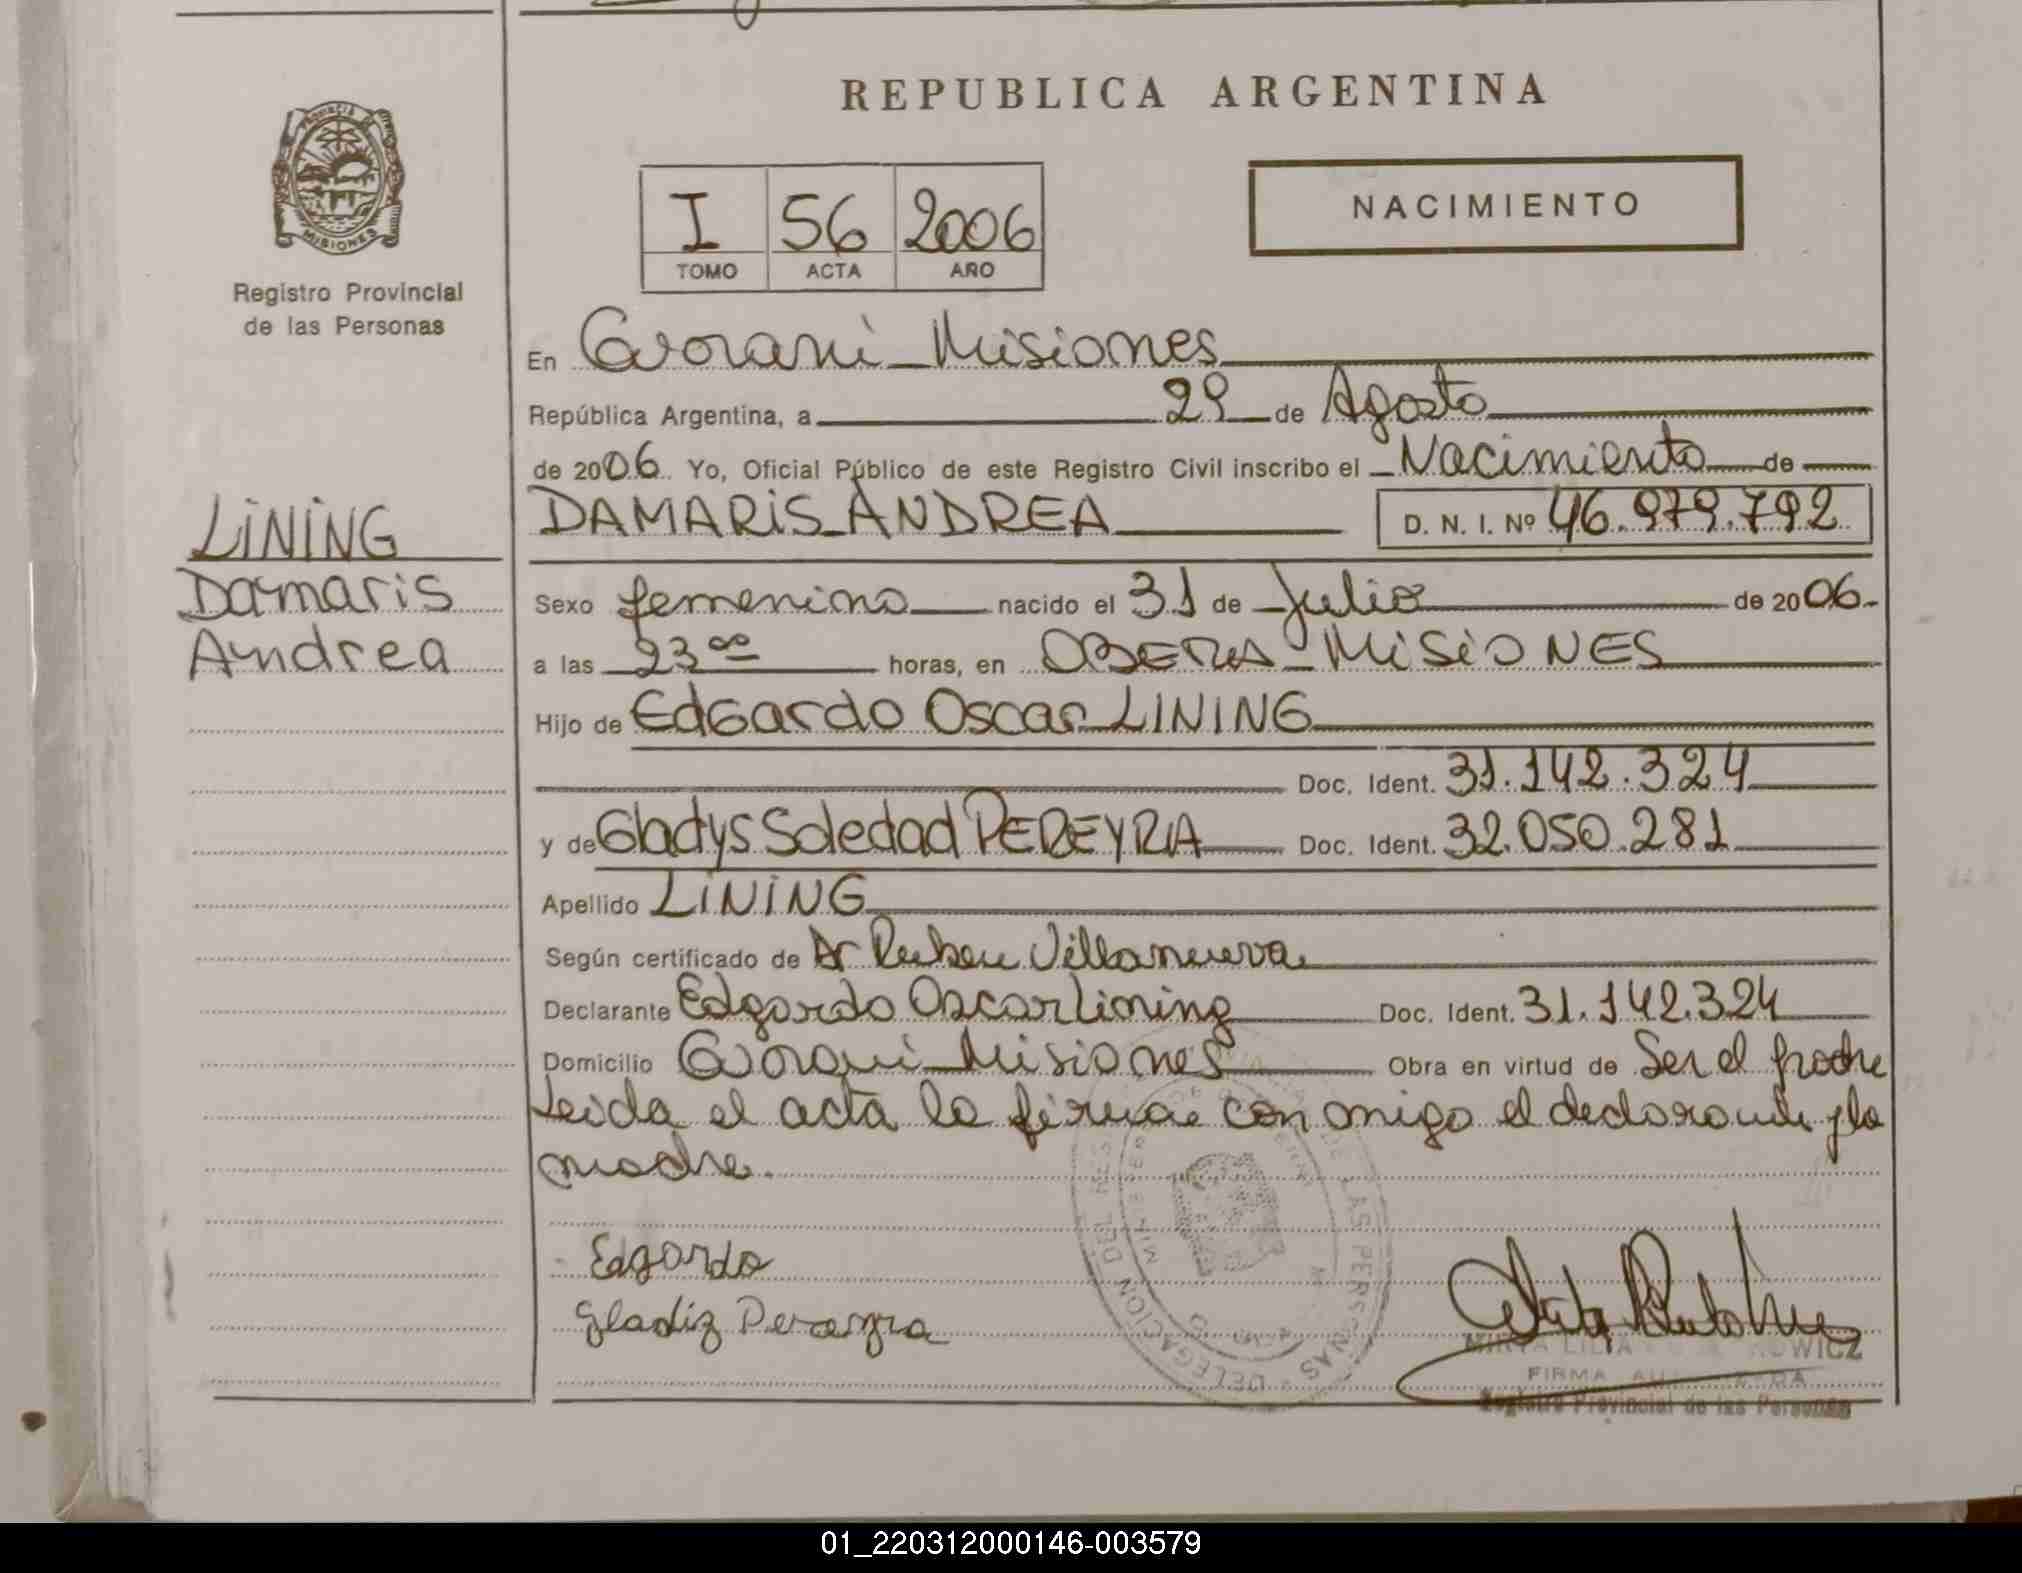 REPUBLICA ARGENTINA
PROVINCIA DE
MISIONES
Registro Provincial
de las Personas
I 56 2006
TOMO ACTA AÑO
NACIMIENTO
En Guarani - Misiones
República Argentina, a 29 de Agosto
de 2006 Yo, Oficial Público de este Registro Civil inscribo el Nacimiento de
LINING
Damaris
Andrea
DAMARIS ANDREA D. N. I. Nº 46.979.792
Sexo femenino nacido el 31 de Julio de 2006
a las 23 ºº horas, en OBERA - MISIONES
Hijo de Edgardo Oscar LINING
Doc. Ident. 31.142.324
y de Gladys Soledad PEREYRA Doc. Ident. 32.050.281
Apellido LINING
Según certificado de Dr Ruben Villanueva
Declarante Edgardo Oscar Lining Doc. Ident. 31.142.324
Domicilio Guarani - Misiones Obra en virtud de Ser el padre
Leida el acta la firman con migo el declarante y la
madre.
Edgardo
Gladiz Perayra
DELEGACION DEL DE LAS PERSONAS
MIRTA LILIA
FIRMA
Registro Provincial de las Personas
01_220312000146-003579